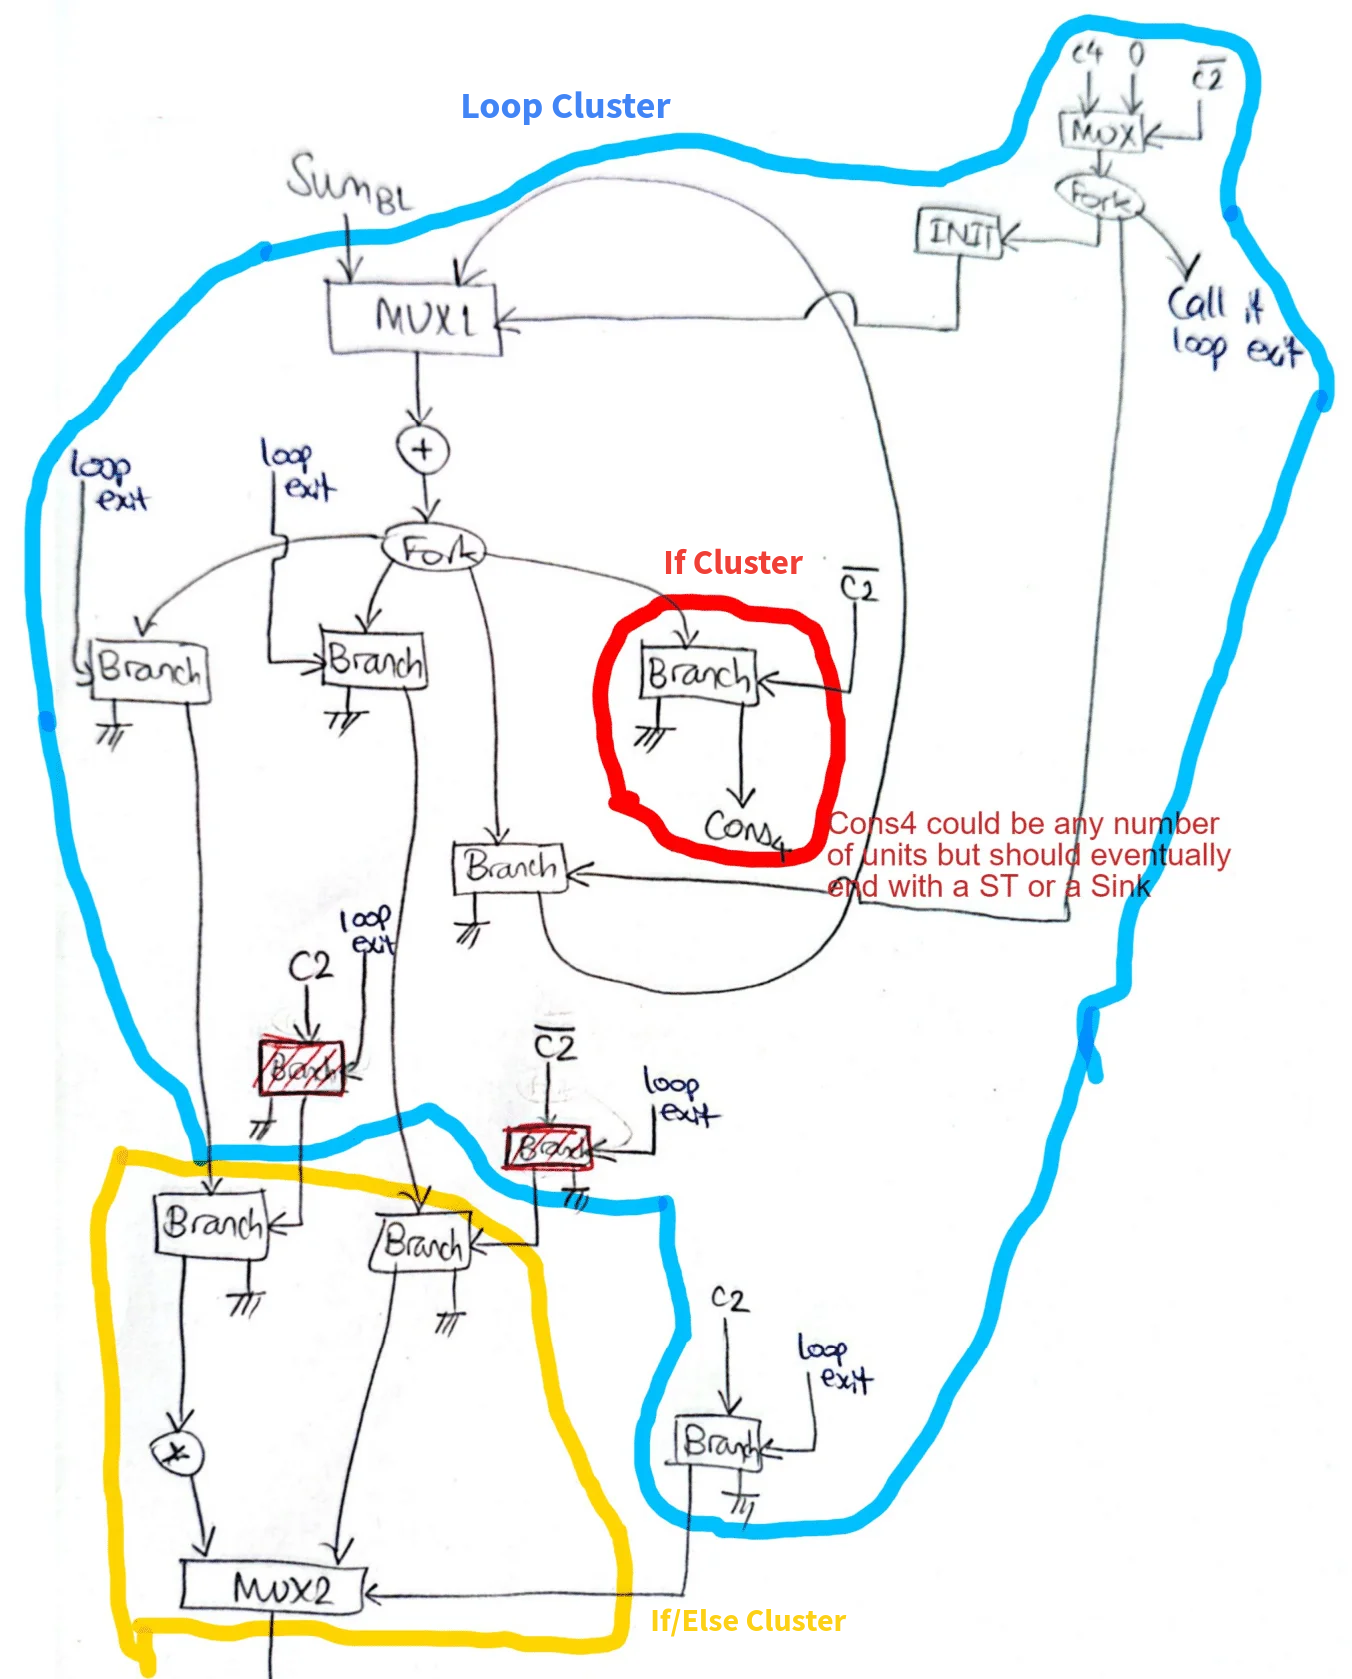 c4 0 c̅2̅
Loop Cluster
MUX
Sum_BL
Fork
INIT
Call it
loop exit
MUX1
+
loop
exit
loop
exit
Fork
If Cluster
c̅2̅
Branch
Branch
Branch
Cons4
Cons4 could be any number
of units but should eventually
end with a ST or a Sink
Branch
loop
exit
C2
Branch
c̅2̅
loop
exit
Branch
Branch
Branch
C2
loop
exit
Branch
*
MUX2
If/Else Cluster